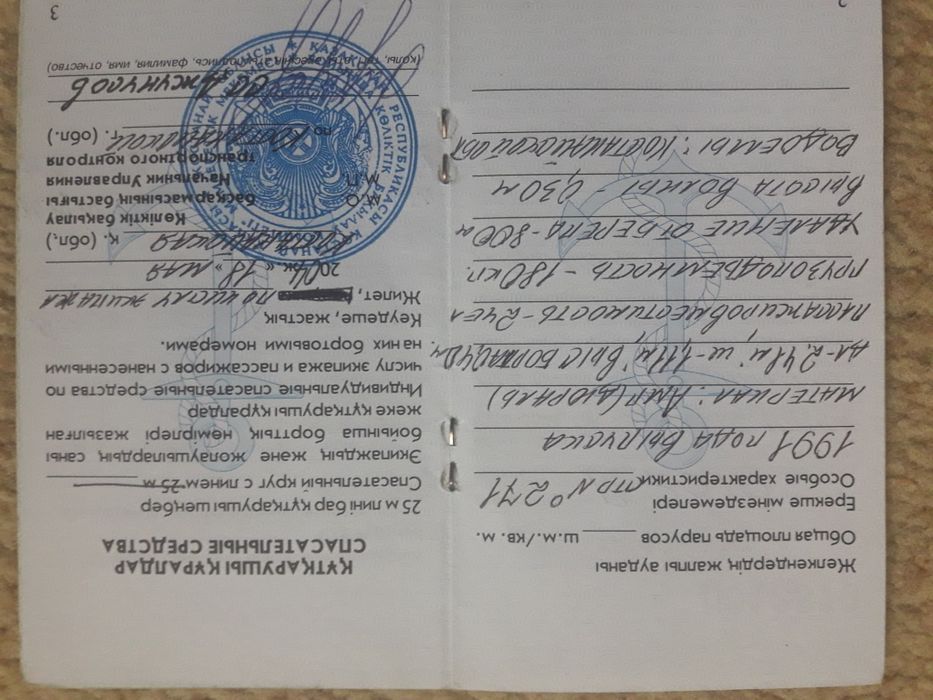 Желкендердің жалпы ауданы
Общая площадь парусов ш.м./кв. м.
Ерекше мінездемелері
Особые характеристики стр № 271
1991 года выпуска
материал: Амг (дюраль)
дл-2,41м, ш-1,11м, выс борта 0,40м.
пассажировместимость-2 чел
грузоподъемность-180кг.
удаление от берега-800м
высота волны - 0,30м
водоемы: Костанайской обл
2
ҚҰТҚАРУШЫ ҚҰРАЛДАР
СПАСАТЕЛЬНЫЕ СРЕДСТВА
25 м лині бар құтқарушы шеңбер
Спасательный круг с линем 25 м
Экипаждың және жолаушылардың саны
бойынша борттық нөмірлері жазылған
және құтқарушы құралдар
Индивидуальные спасательные средства по
числу экипажа и пассажиров с нанесенными
на них бортовыми номерами.
Кеудеше, жастық
Жилет, по числу экипажа
20 ж. « 18 » мая
қ. (обл.)
Көліктік бақылау
басқармасының бастығы М.О.
Начальник Управления М.П.
транспортного контроля
по Костанайской г. (обл.)
Джунусов
(қолы, тегі, әкесінің аты, подпись, фамилия, имя, отчество)
3